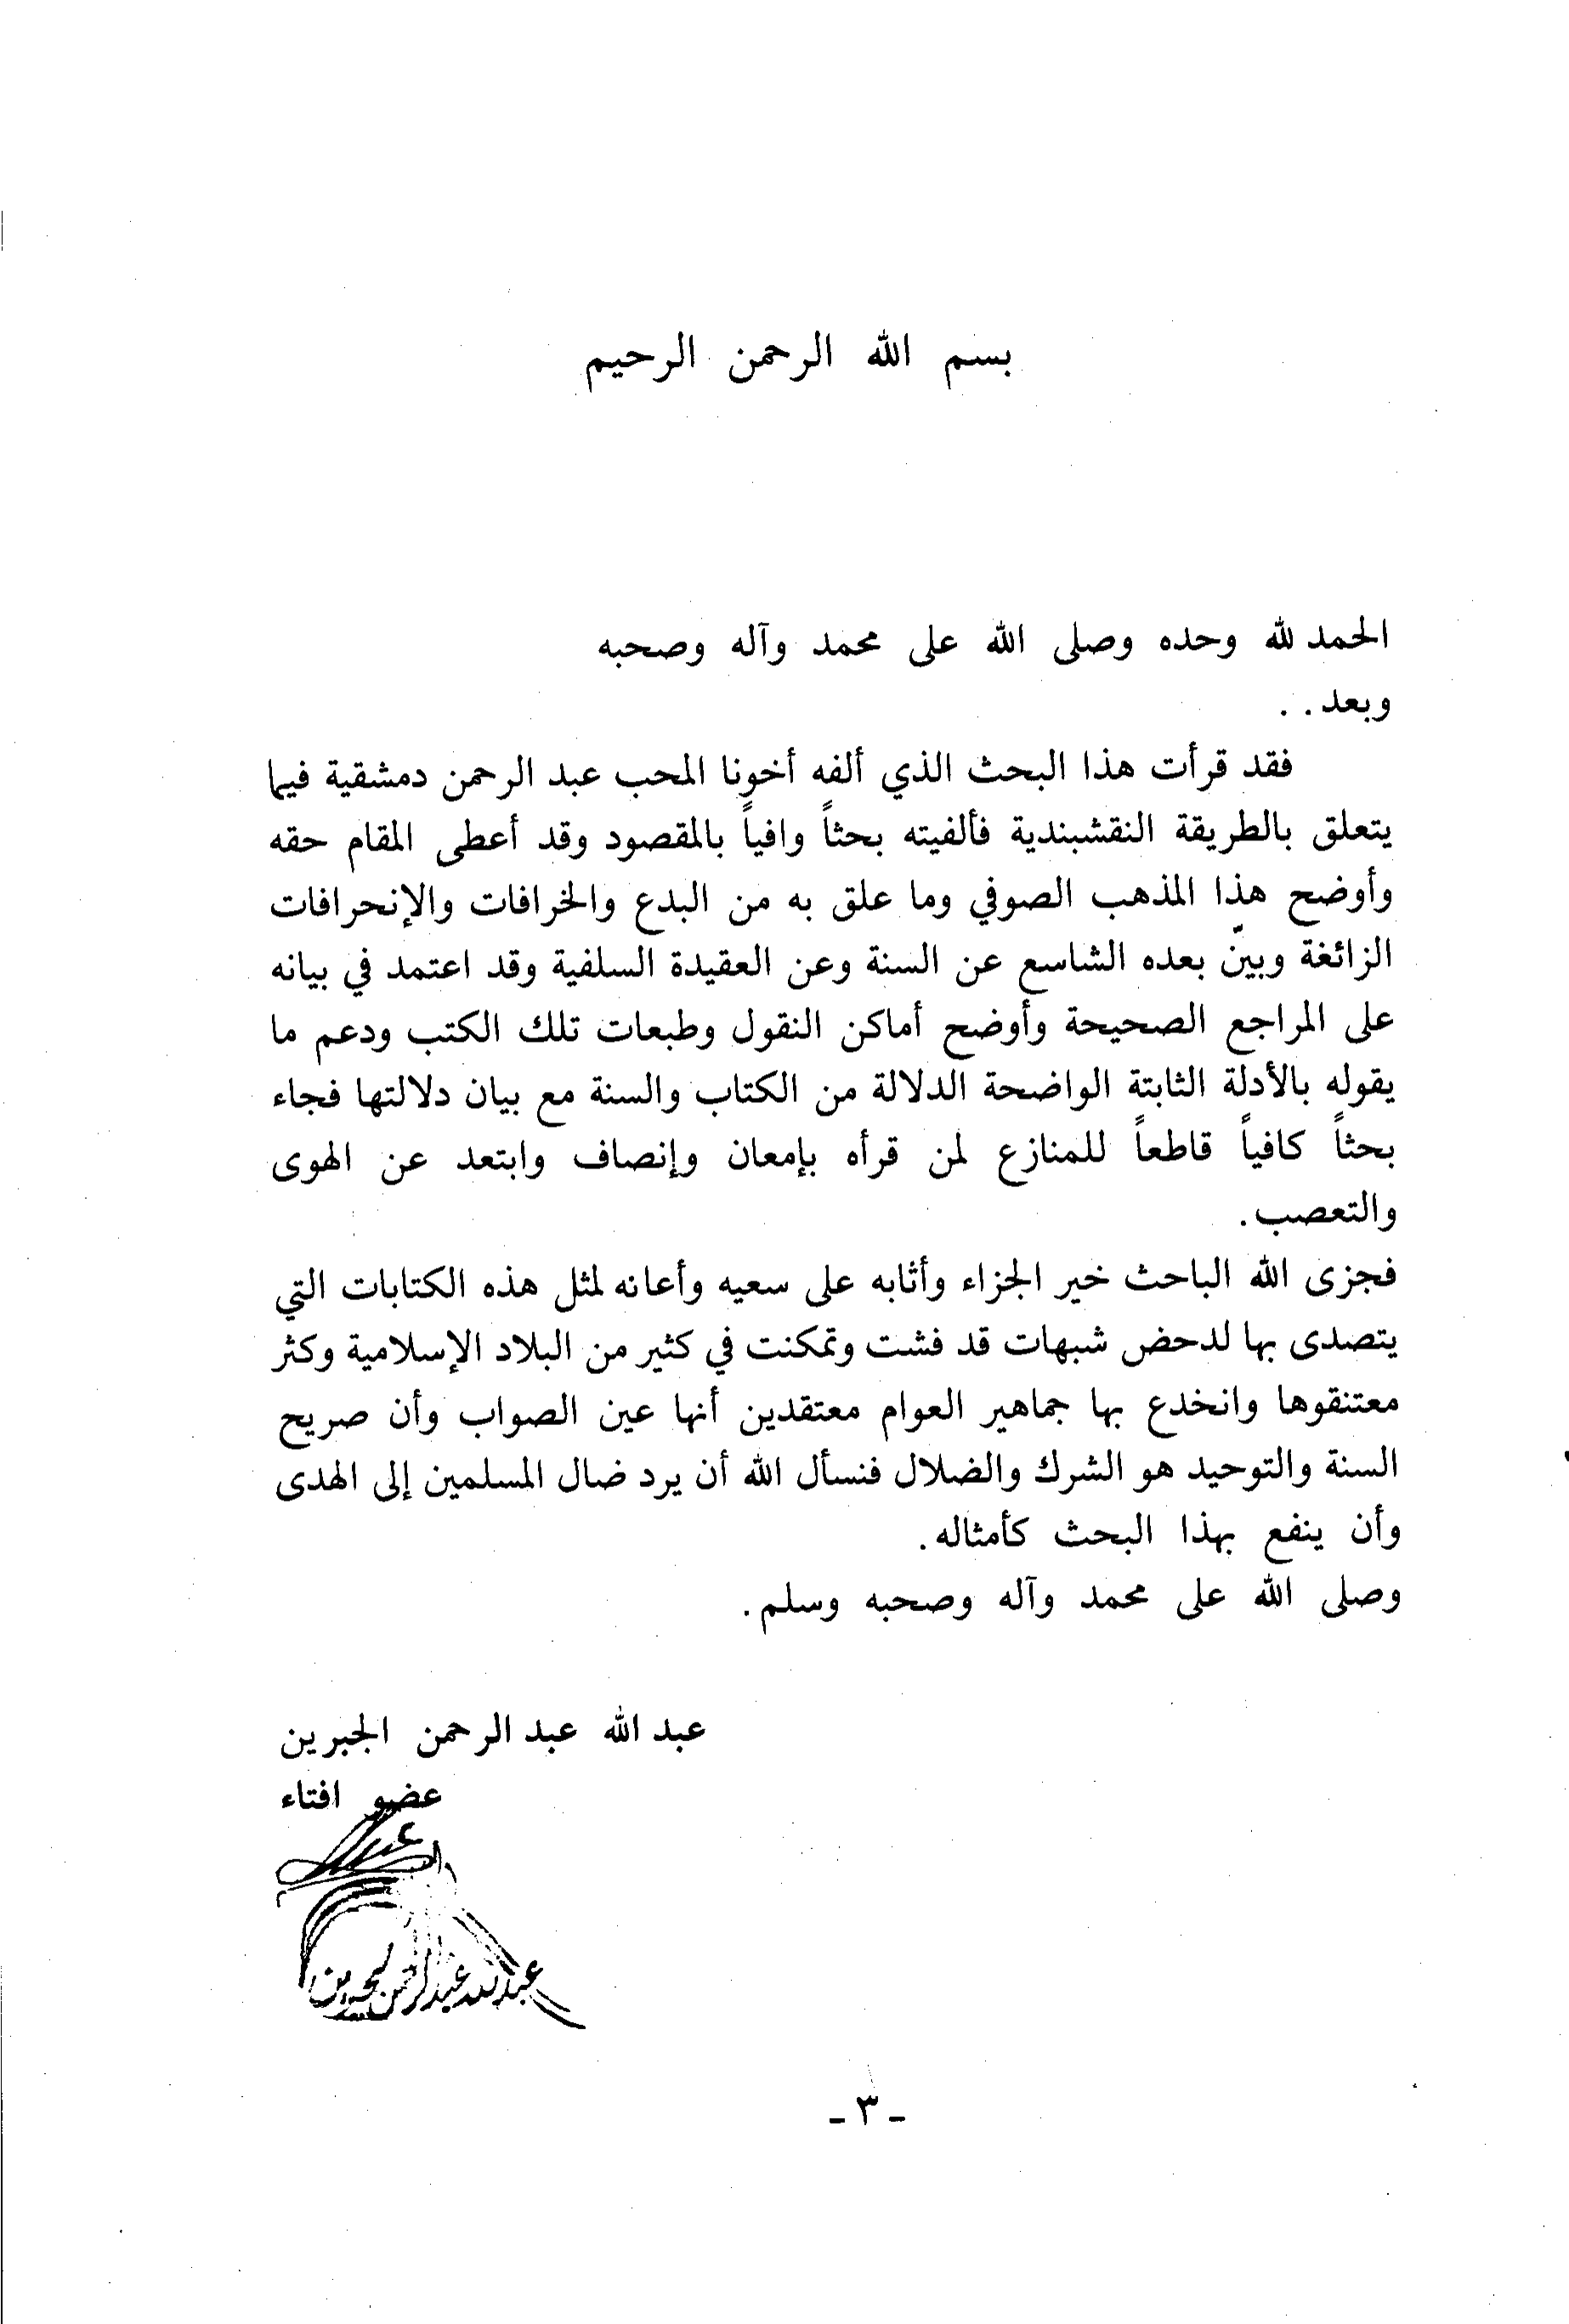 بسم الله الرحمن الرحيم
الحمد لله وحده وصلى الله على محمد وآله وصحبه
وبعد . .
فقد قرأت هذا البحث الذي ألفه أخونا المحب عبد الرحمن دمشقية فيما
يتعلق بالطريقة النقشبندية فألفيته بحثاً وافياً بالمقصود وقد أعطى المقام حقه
وأوضح هذا المذهب الصوفي وما علق به من البدع والخرافات والإنحرافات
الزائغة وبينّ بعده الشاسع عن السنة وعن العقيدة السلفية وقد اعتمد في بيانه
على المراجع الصحيحة وأوضح أماكن النقول وطبعات تلك الكتب ودعم ما
يقوله بالأدلة الثابتة الواضحة الدلالة من الكتاب والسنة مع بيان دلالتها فجاء
بحثاً كافياً قاطعاً للمنازع لمن قرأه بإمعان وإنصاف وابتعد عن الهوى
والتعصب.
فجزى الله الباحث خير الجزاء وأثابه على سعيه وأعانه لمثل هذه الكتابات التي
يتصدى بها لدحض شبهات قد فشت وتمكنت في كثير من البلاد الإسلامية وكثر
معتنقوها وانخدع بها جماهير العوام معتقدين أنها عين الصواب وأن صريح
السنة والتوحيد هو الشرك والضلال فنسأل الله أن يرد ضال المسلمين إلى الهدى
وأن ينفع بهذا البحث كأمثاله.
وصلى الله على محمد وآله وصحبه وسلم.
عبد الله عبد الرحمن الجبرين
عضو افتاء
عبدالله عبدالرحمن الجبرين
- ٣ -